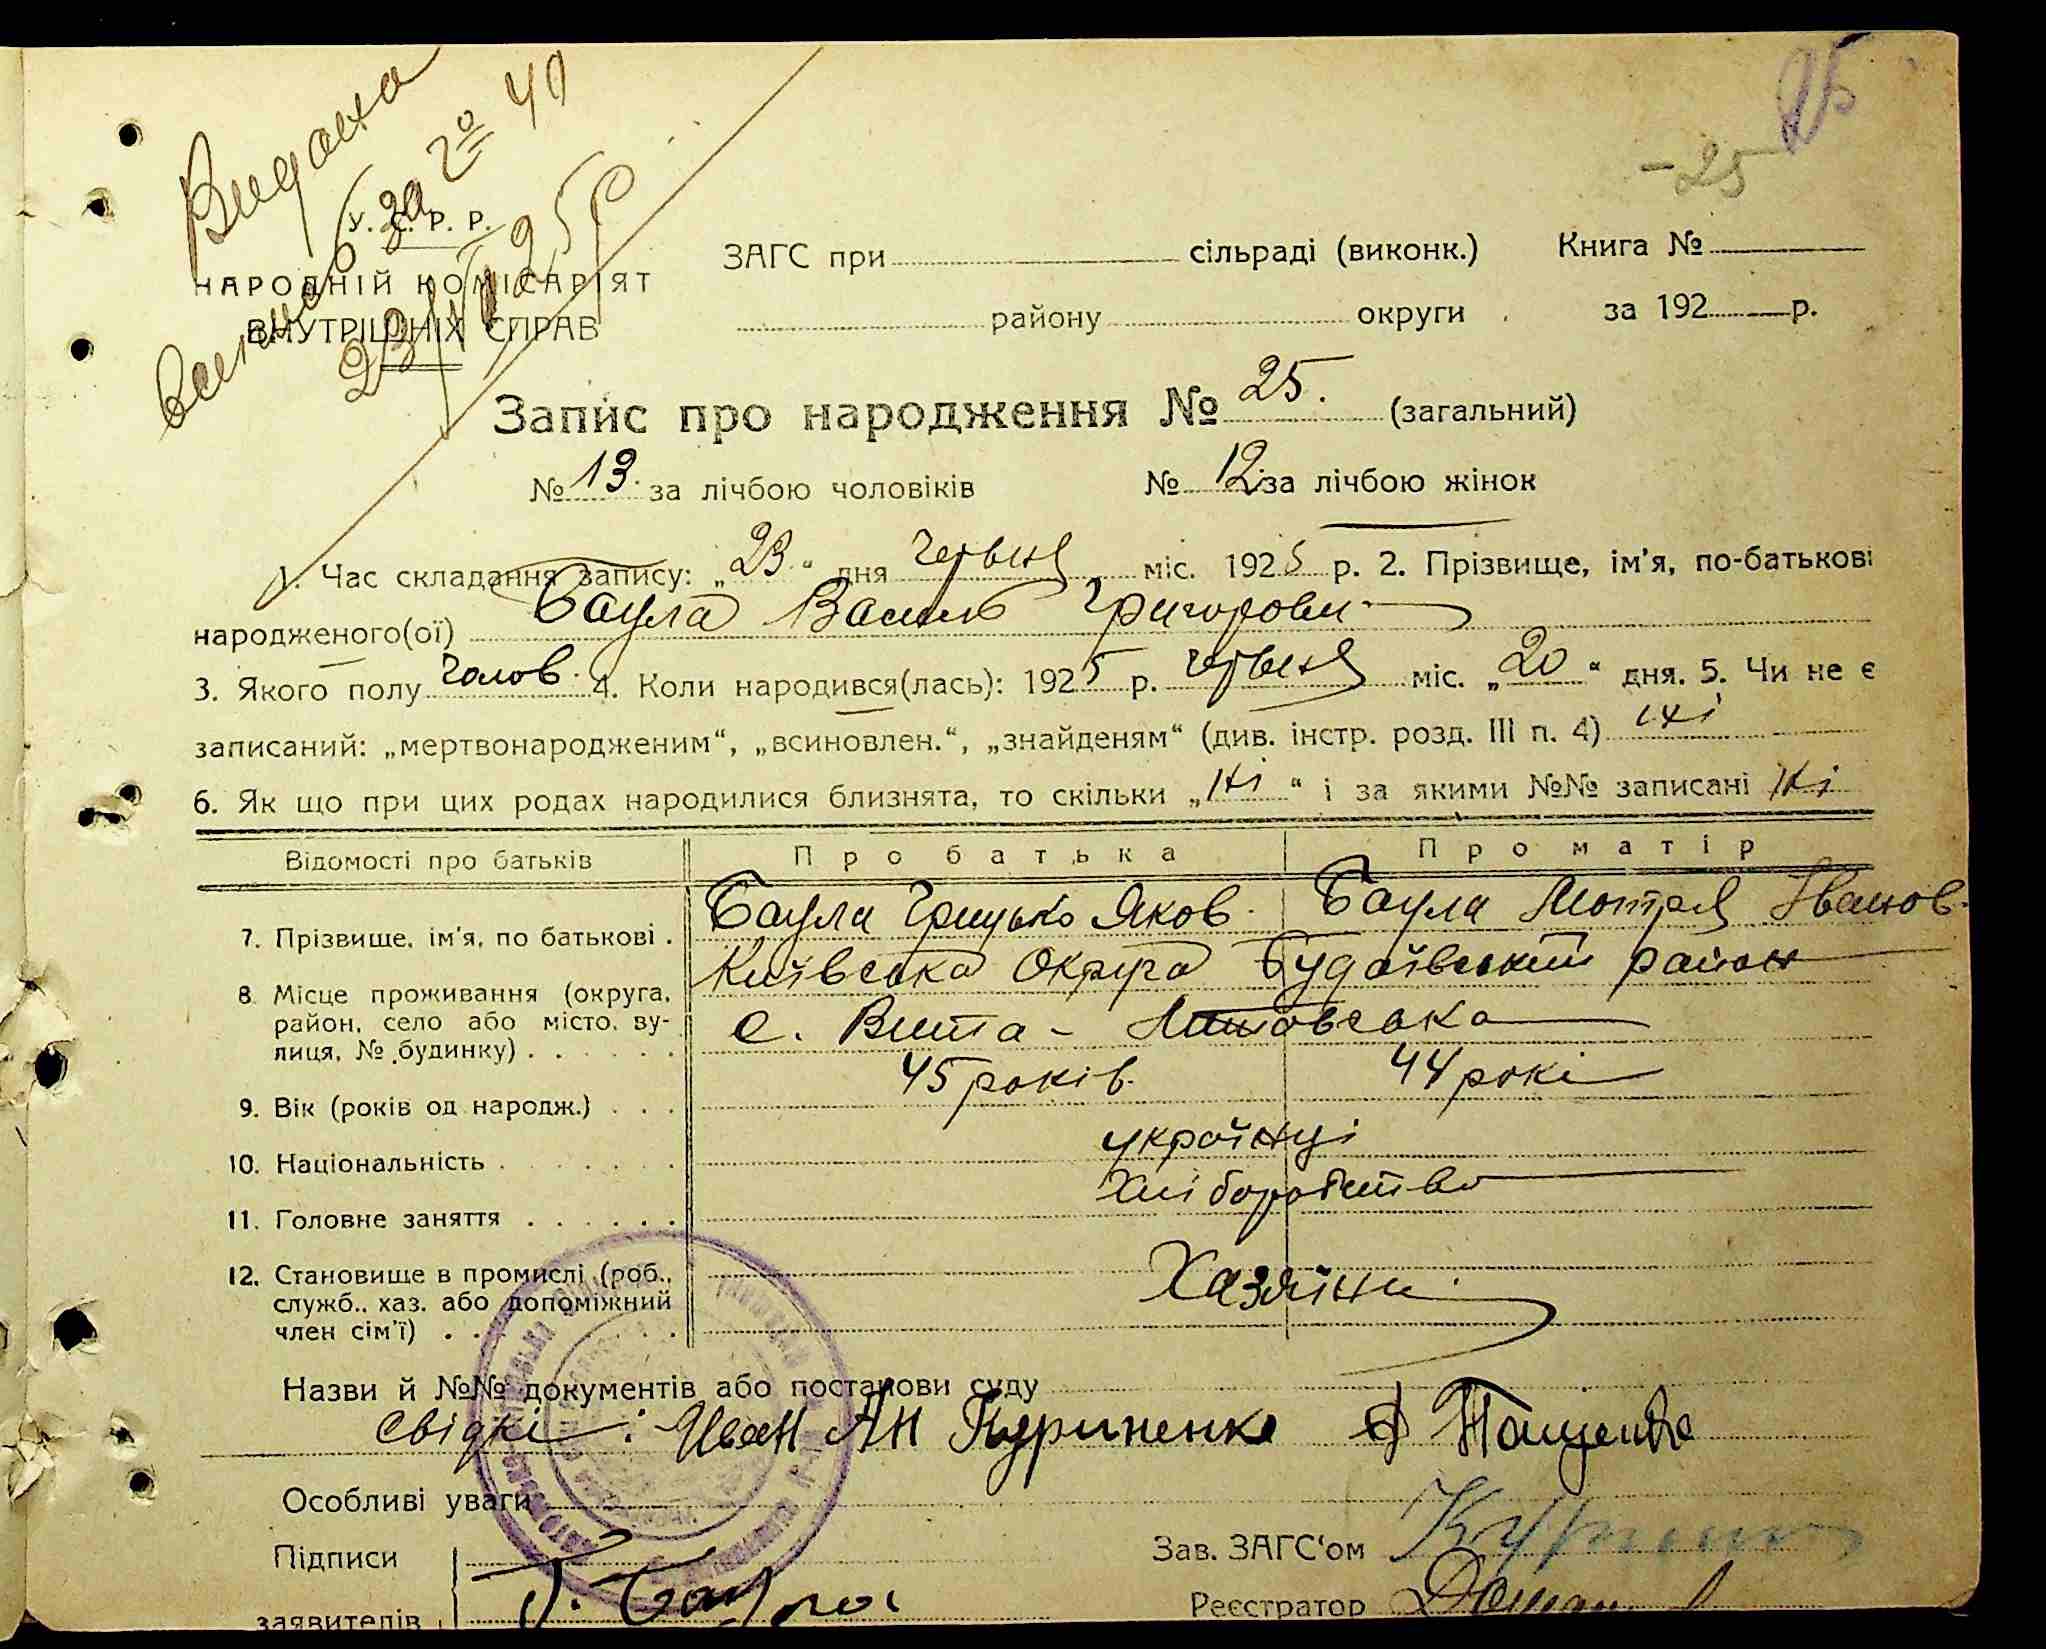 25
-25
Видана
виписка за № 40
23/VI 925 р
У. С. Р. Р.
НАРОДНІЙ КОМІСАРІЯТ
ВНУТРІШНІХ СПРАВ
ЗАГС при сільраді (виконк.) Книга №
району округи за 192 р.
Запис про народження № 25. (загальний)
№ 13. за лічбою чоловіків № 12 за лічбою жінок
1. Час складання запису: „23“ дня червня міс. 1925 р. 2. Прізвище, ім'я, по-батькові
народженого(ої) Баула Василь Григорови
3. Якого полу чолов. 4. Коли народився(лась): 1925 р. червня міс. „20“ дня. 5. Чи не є
записаний: „мертвонародженим“, „всиновлен.“, „знайденям“ (див. інстр. розд. III п. 4) ні
6. Як що при цих родах народилися близнята, то скільки „ні“ і за якими №№ записані ні
Відомості про батьків Про батька Про матір
7. Прізвище, ім'я, по батькові . Баула Грицько Яков. Баула Мотря Іванов.
8. Місце проживання (округа, район, село або місто, вулиця, № будинку) . . . . . . Київська Округа Будаївський район
с. Вита - Литовська
9. Вік (років од народж.) . . . 45 років. 44 рокі
10. Національність . . . . . . . українці
11. Головне заняття . . . . . . Хліборобство
12. Становище в промислі (роб., служб., хаз. або допоміжний член сім'ї) . . . . . . Хазяїни
Назви й №№ документів або постанови суду
Свідкі: Иван Ан Куриненко Тащенко
Особливі уваги
Підписи Зав. ЗАГС'ом
заявителів Г. Баула Реєстратор